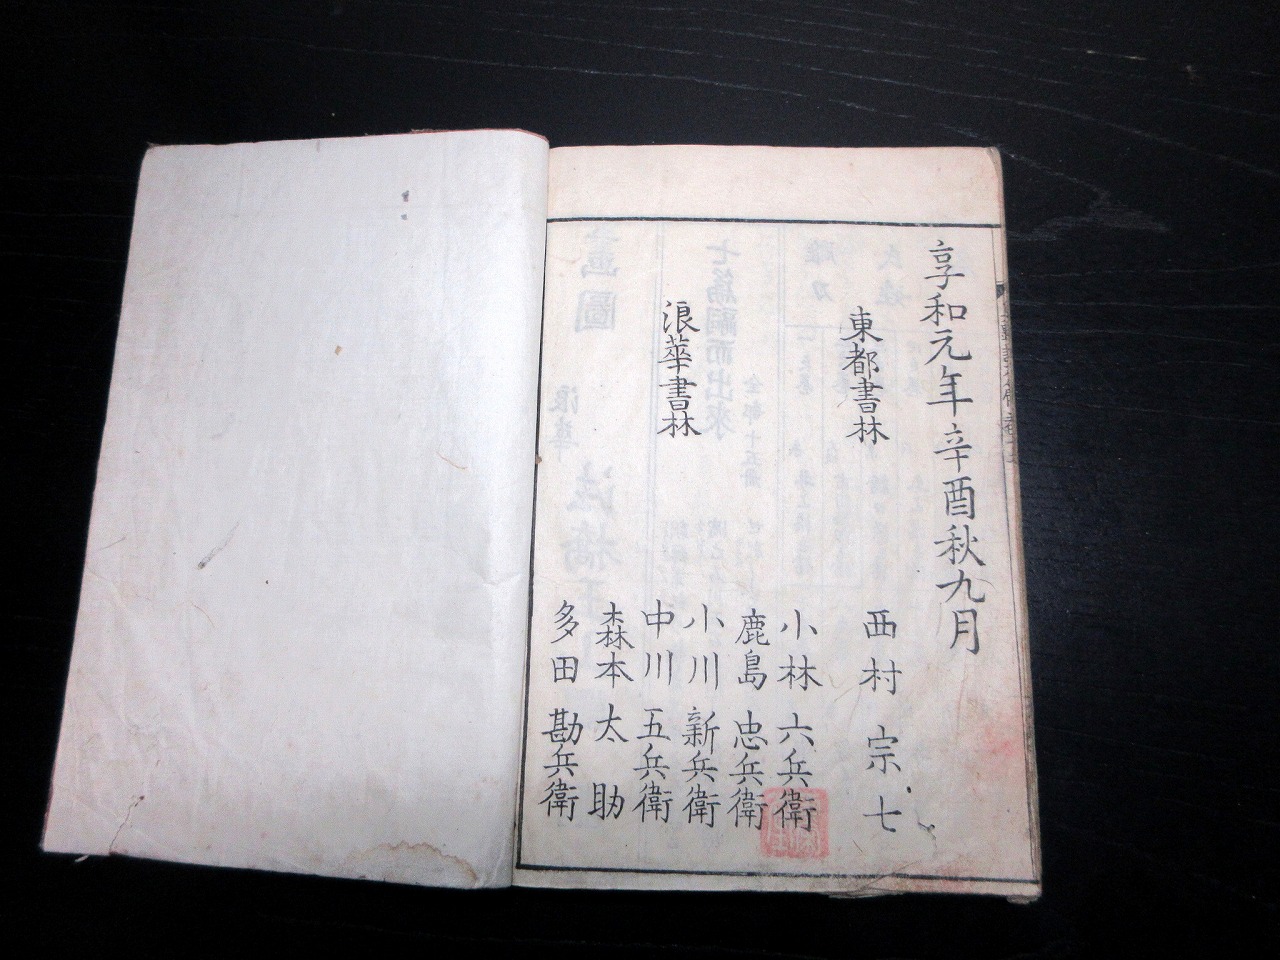 享和元年辛酉秋九月
東都書林
西村宗七
浪華書林
小林六兵衛
鹿島忠兵衛
小川新兵衛
中川五兵衛
森本太助
多田勘兵衛